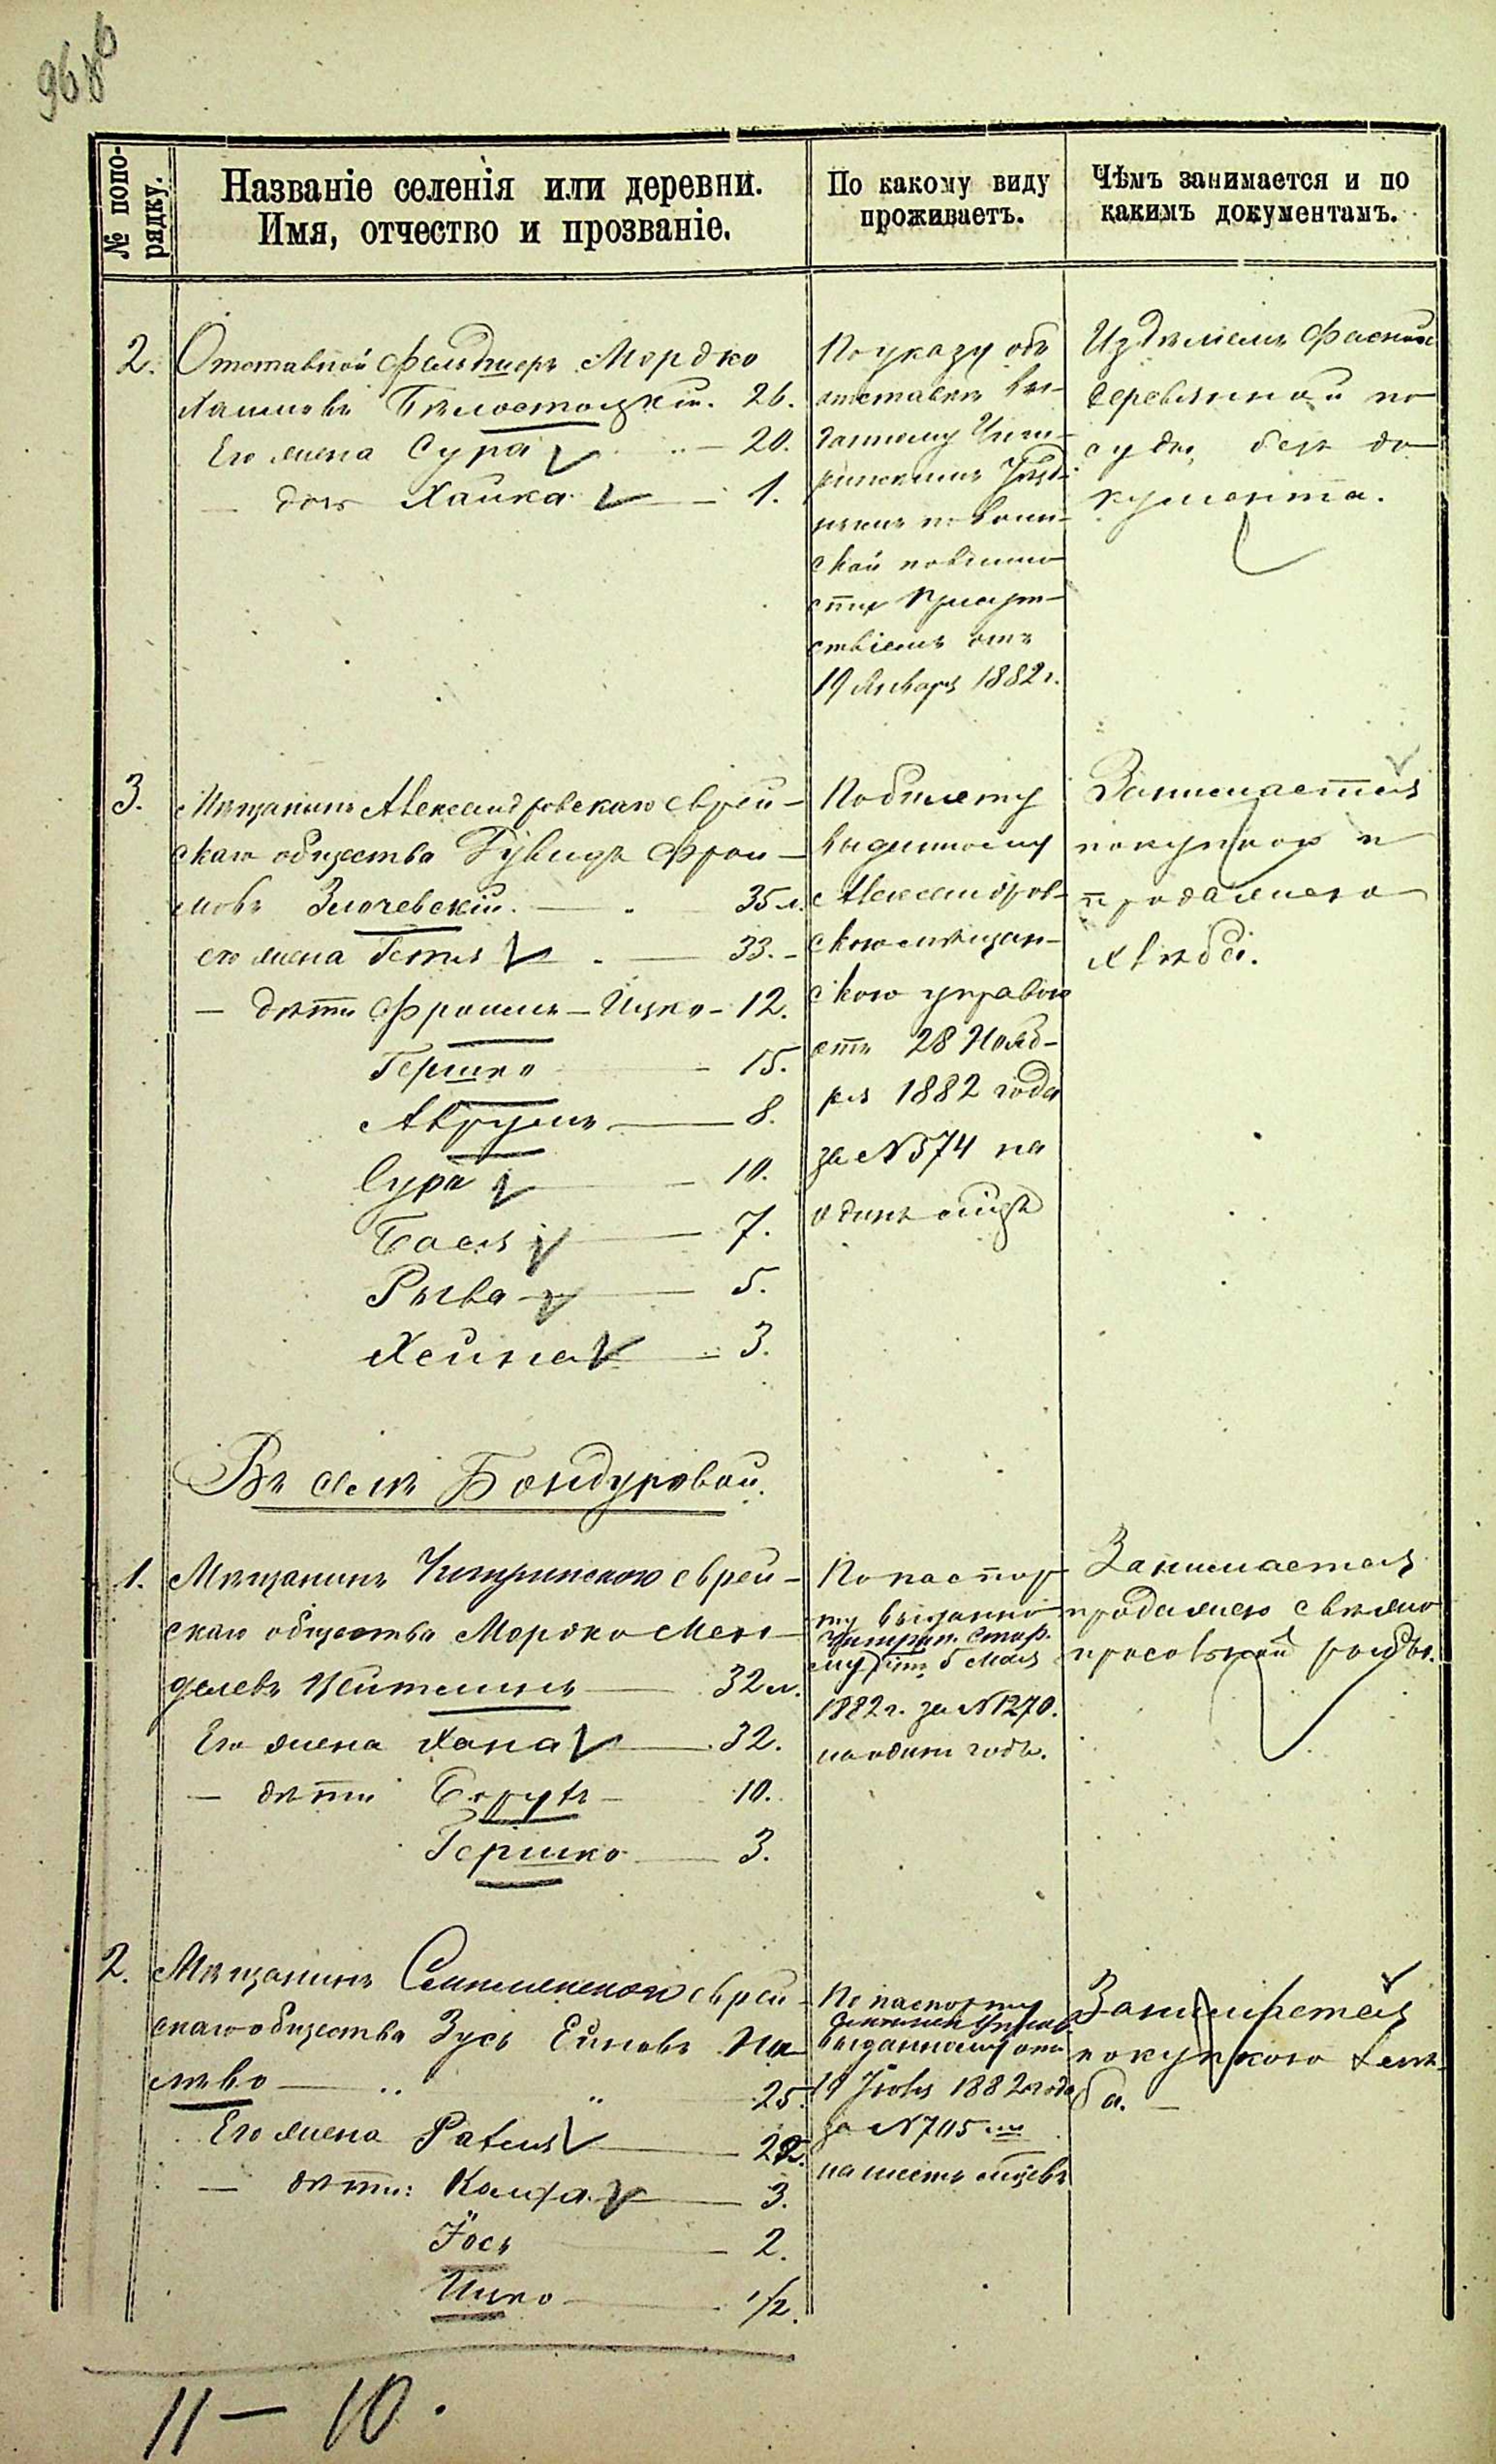 № попо-
рядку.
Названіе селенія или деревни.
Имя, отчество и прозваніе.
По какому виду
проживаетъ.
Чѣмъ занимается и по
какимъ документамъ.
2. Отставной фельдшеръ Мордко
Хаимовъ Бѣлостоцкій. 26.
Его жена Сура 20.
— дочь Хайка — 1.
По указу объ
отставкѣ вы-
данному Чиги-
ринскимъ Уѣзд-
нымъ по воин-
ской повинно
сти Присут-
ствіемъ отъ
19 Января 1882 г.
Издѣліемъ
деревянной по
суды, безъ до
кумента.
3. Мѣщанинъ Александровскаго еврей-
скаго общества Рувинъ Фрои-
мовъ Злочевскій. — 35 л.
его жена Гитля — 33.
— дѣти Фроимъ-Ицко — 12.
Гершко — 15.
Аврумъ — 8.
Сура — 10.
Бася — 7.
Рыва — 5.
Хейна — 3.
По билету
выданному
Александров-
скою мѣщан-
скою управою
отъ 28 Нояб-
ря 1882 года
за №574 на
одинъ мѣсяцъ
Занимается
покупкою и
продажею
хлѣба.
Въ селѣ Бондуровой.
1. Мѣщанинъ Чигиринскаго еврей-
скаго общества Мордко Мен-
делевъ Вейтманъ — 32 л.
Его жена Хана — 32.
— дѣти Борухъ — 10.
Гершко — 3.
По паспор
ту выданно
Чигирин. Стар.
му отъ 5 Мая
1882 г. за №1270.
на одинъ годъ.
Занимается
продажею свѣжо
просольной рыбы.
2. Мѣщанинъ еврей-
скаго общества Зусь
25.
Его жена 22.
— дѣти: 3.
Іось — 2.
Ицко — 1/2.
По паспорту
выданному отъ
19 Іюля 1882 года
за №705
на шесть мѣсцевъ
Занимается
покупкою хлѣ-
ба. —
11 — 10.